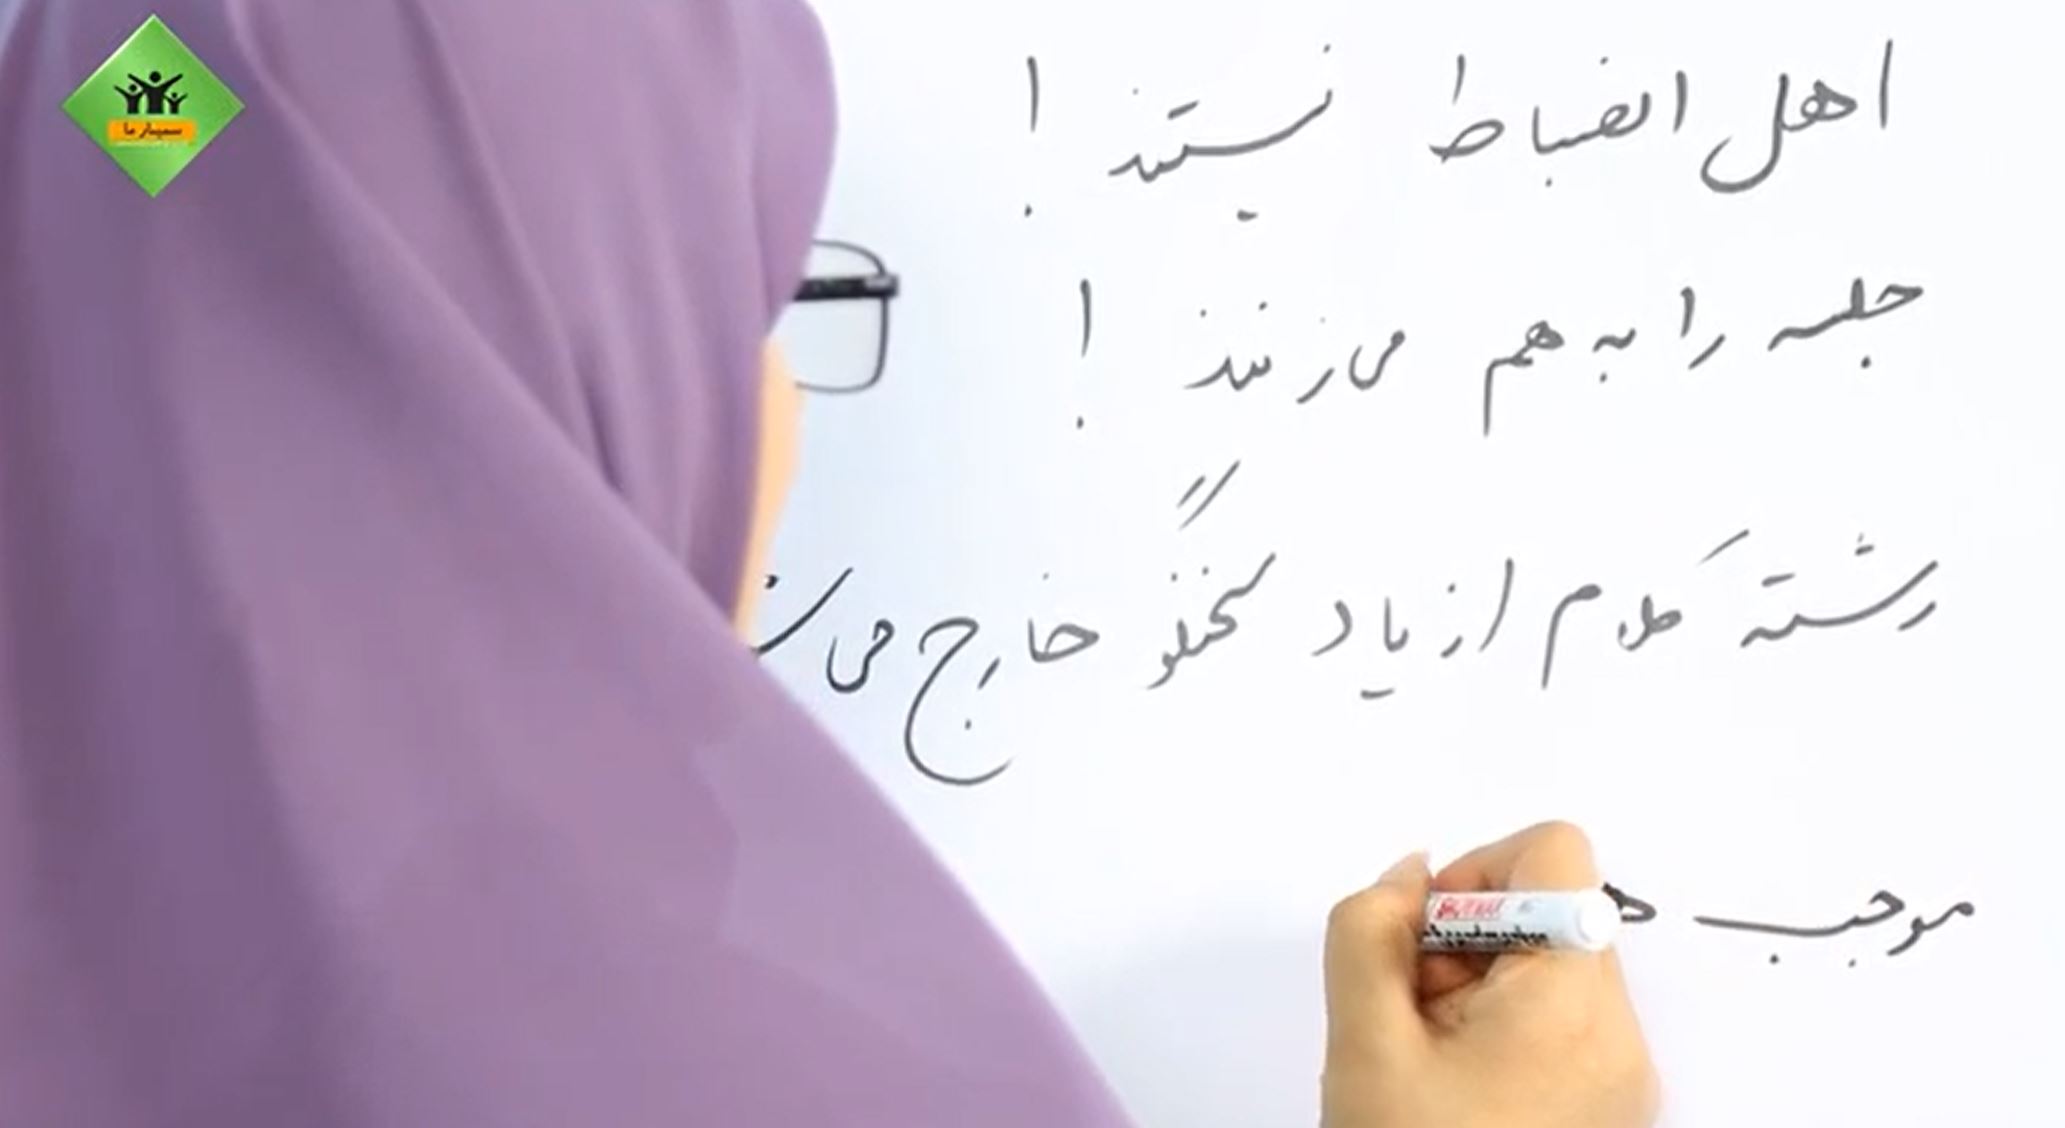 سمینار ما
اهل انضباط نیستند !
جلسه را به هم می‌زنند !
رشتهَ کلام از یاد سخنگو خارج می
موجب